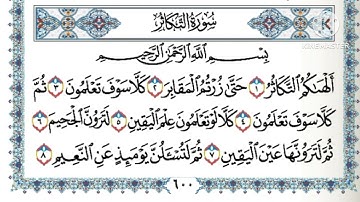 سُورَةُ التَّكَاثُرِ
بِسْمِ اللَّهِ الرَّحْمَٰنِ الرَّحِيمِ
أَلْهَىٰكُمُ التَّكَاثُرُ ١ حَتَّىٰ زُرْتُمُ الْمَقَابِرَ ٢ كَلَّا سَوْفَ تَعْلَمُونَ ٣ ثُمَّ
كَلَّا سَوْفَ تَعْلَمُونَ ٤ كَلَّا لَوْ تَعْلَمُونَ عِلْمَ الْيَقِينِ ٥ لَتَرَوُنَّ الْجَحِيمَ ٦
ثُمَّ لَتَرَوُنَّهَا عَيْنَ الْيَقِينِ ٧ ثُمَّ لَتُسْـَٔلُنَّ يَوْمَئِذٍ عَنِ النَّعِيمِ ٨
٦٠٠
KINEMASTER